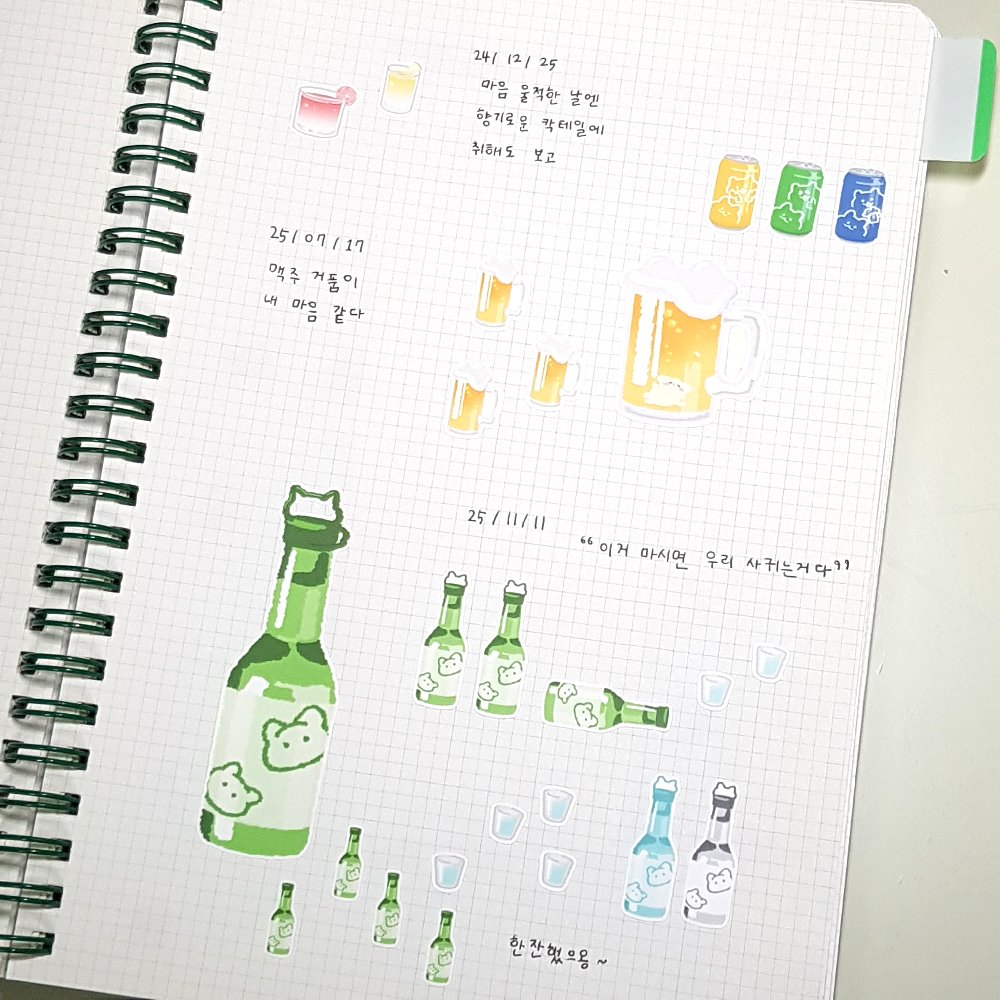 24/ 12/ 25
마음 울적한 날엔
향기로운 칵테일에
취해도 보고
25/07/17
맥주 거품이
내 마음 같다
25/11/11
“이거 마시면 우리 사귀는거다”
한잔했으용~